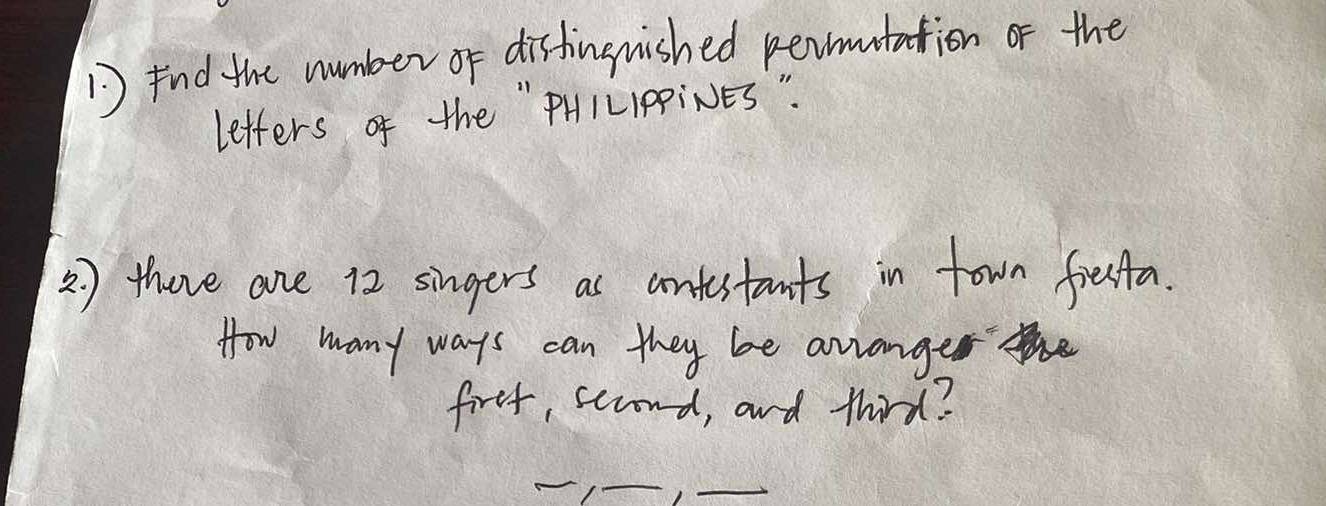 1.) Find the number of distinguished permutation of the
letters of the "PHILIPPINES".
2.) there are 12 singers as contestants in town fiesta.
How many ways can they be arranger the
first, second, and third?